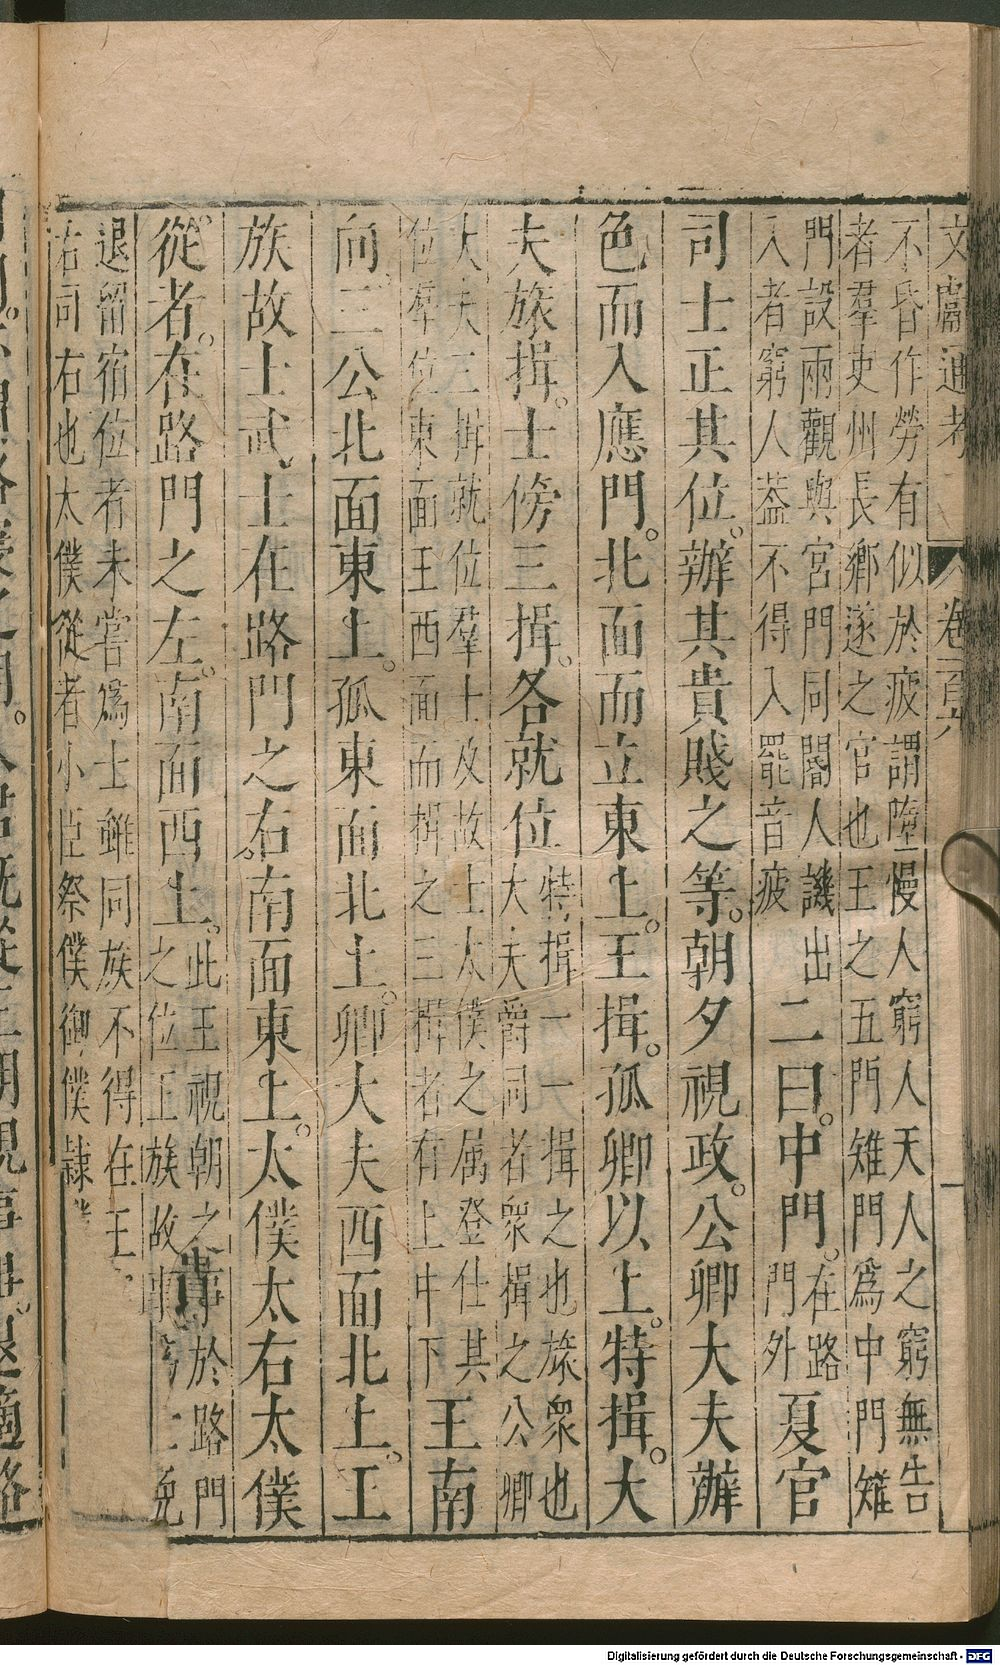 文獻通考 卷百六
不昏作勞有似於疲謂墮慢人窮人天人之窮無告
者羣吏州長鄉遂之官也王之五門雉門爲中門雉
門設兩觀與宮門同閽人譏出
入者窮人葢不得入罷音疲
二曰。中門。
在路
門外
夏官
司士正其位。辦其貴賤之等。朝夕視政。公卿大夫辦
色而入應門。北面而立東上。王揖。孤卿以上。特揖。大
夫旅揖。士傍三揖。各就位
特揖一一揖之也旅衆也
大夫爵同者衆揖之公卿
大夫三揖就位羣士及故士太僕之属登仕其
位羣位東面王西面而揖之三揖者有上中下
王南
向。三公北面東上。孤東面北上。卿大夫西面北上。王
族故士武士在路門之右。南面東上。太僕太右太僕
從者。在路門之左。南面西上。
此王視朝之事於路門
之位王族故
退留宿位者未嘗爲士雖同族不得在王
右司右也太僕從者小臣祭僕御僕隸僕
Digitalisierung gefördert durch die Deutsche Forschungsgemeinschaft - DFG